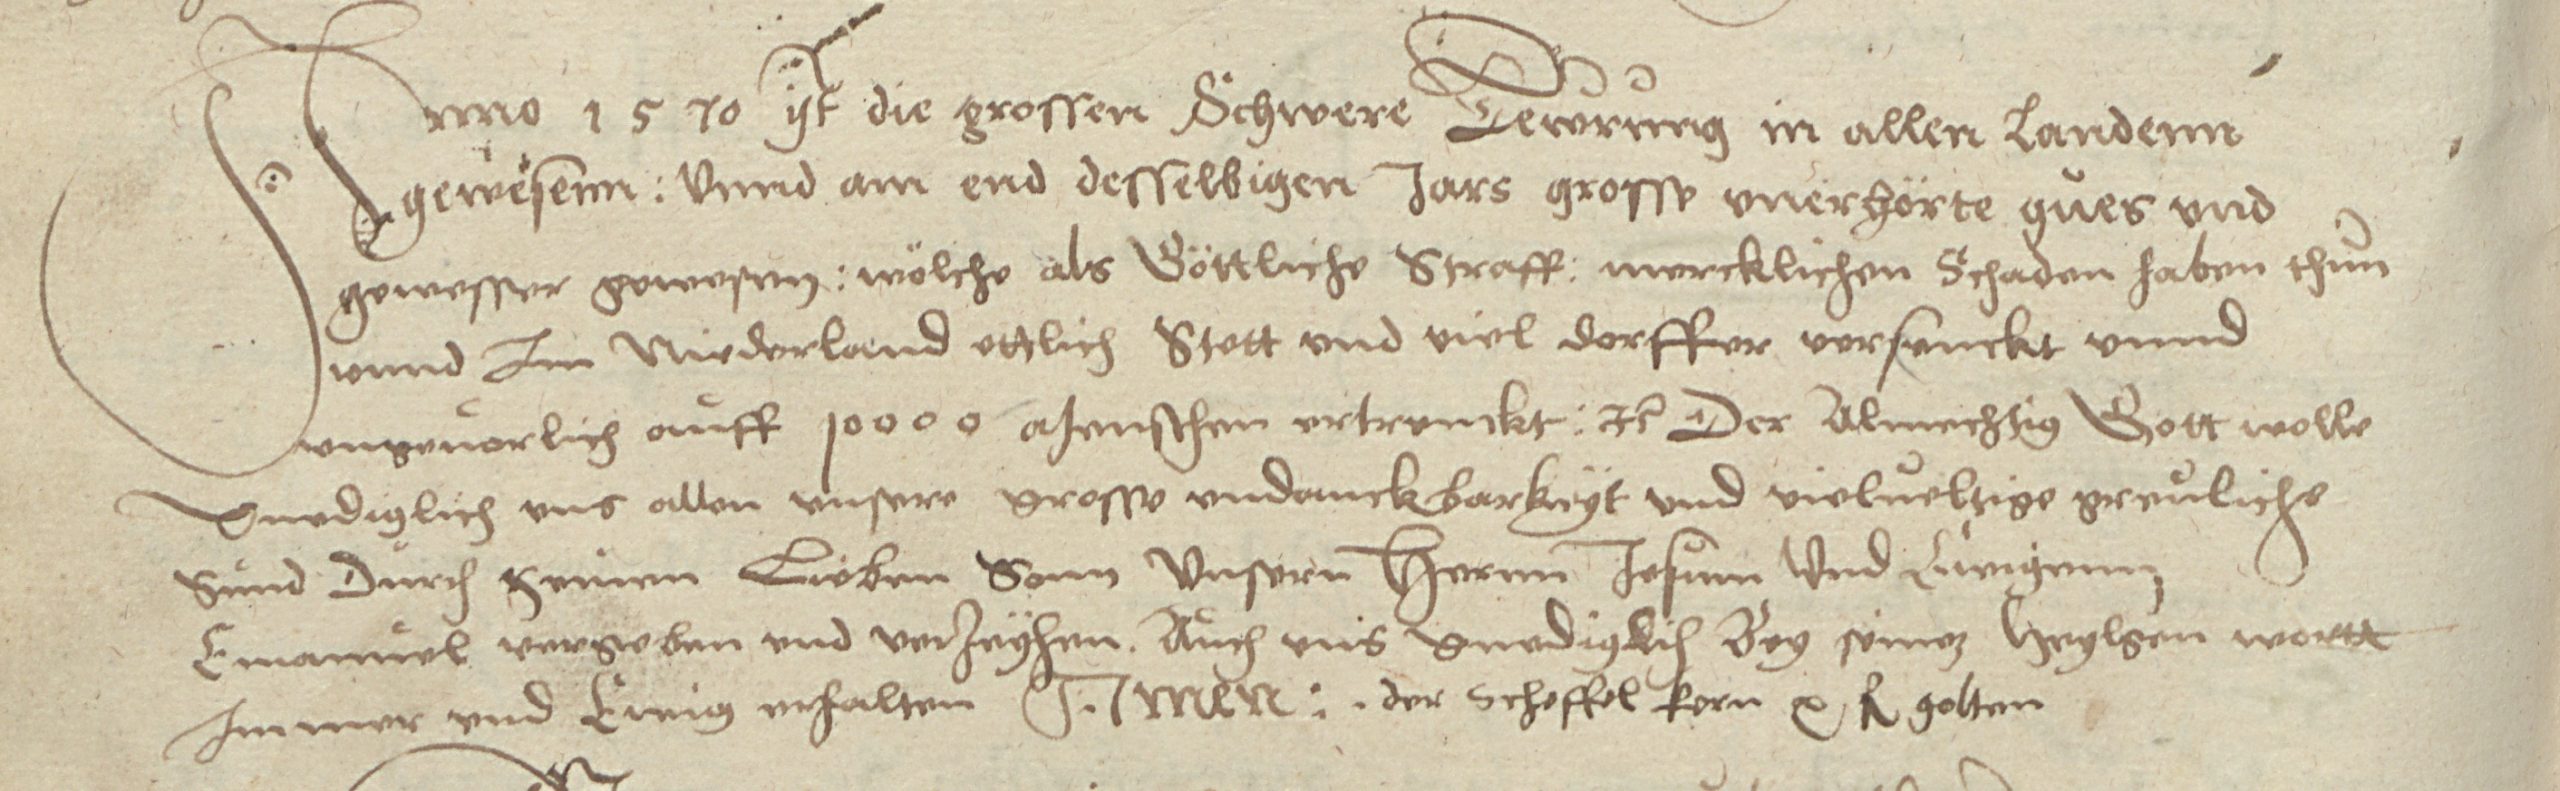 Anno 1570 ist die grossen Schwere Tewrung in allen Landenn
gewesenn: Vnnd am end desselbigen Jars grosse vnerhörte gües vnd
gewesser gewesen: wölche als Göttliche Straff: mercklichen Schaden haben thun
vnnd Im Niederland ettlich Stett vnd viel dorffer versenckt vnnd
vngeuorlich auff 10000 Menschen ertrenckt: Der Almechtig Gott wolle
Gnediglich vns allen vnsere grosse vndanckbarkeyt vnd vielueltige greuliche
Sünd Durch seinen Lieben Sonn Vnsern Herrnn Jesum Vnd Ewigenn
Emanuel vergeben vnd verzeyhen. Auch vns Gnediglich Bey seinem heylgen wortt
Immer vnd Ewig erhalten Amen: der scheffel korn golten